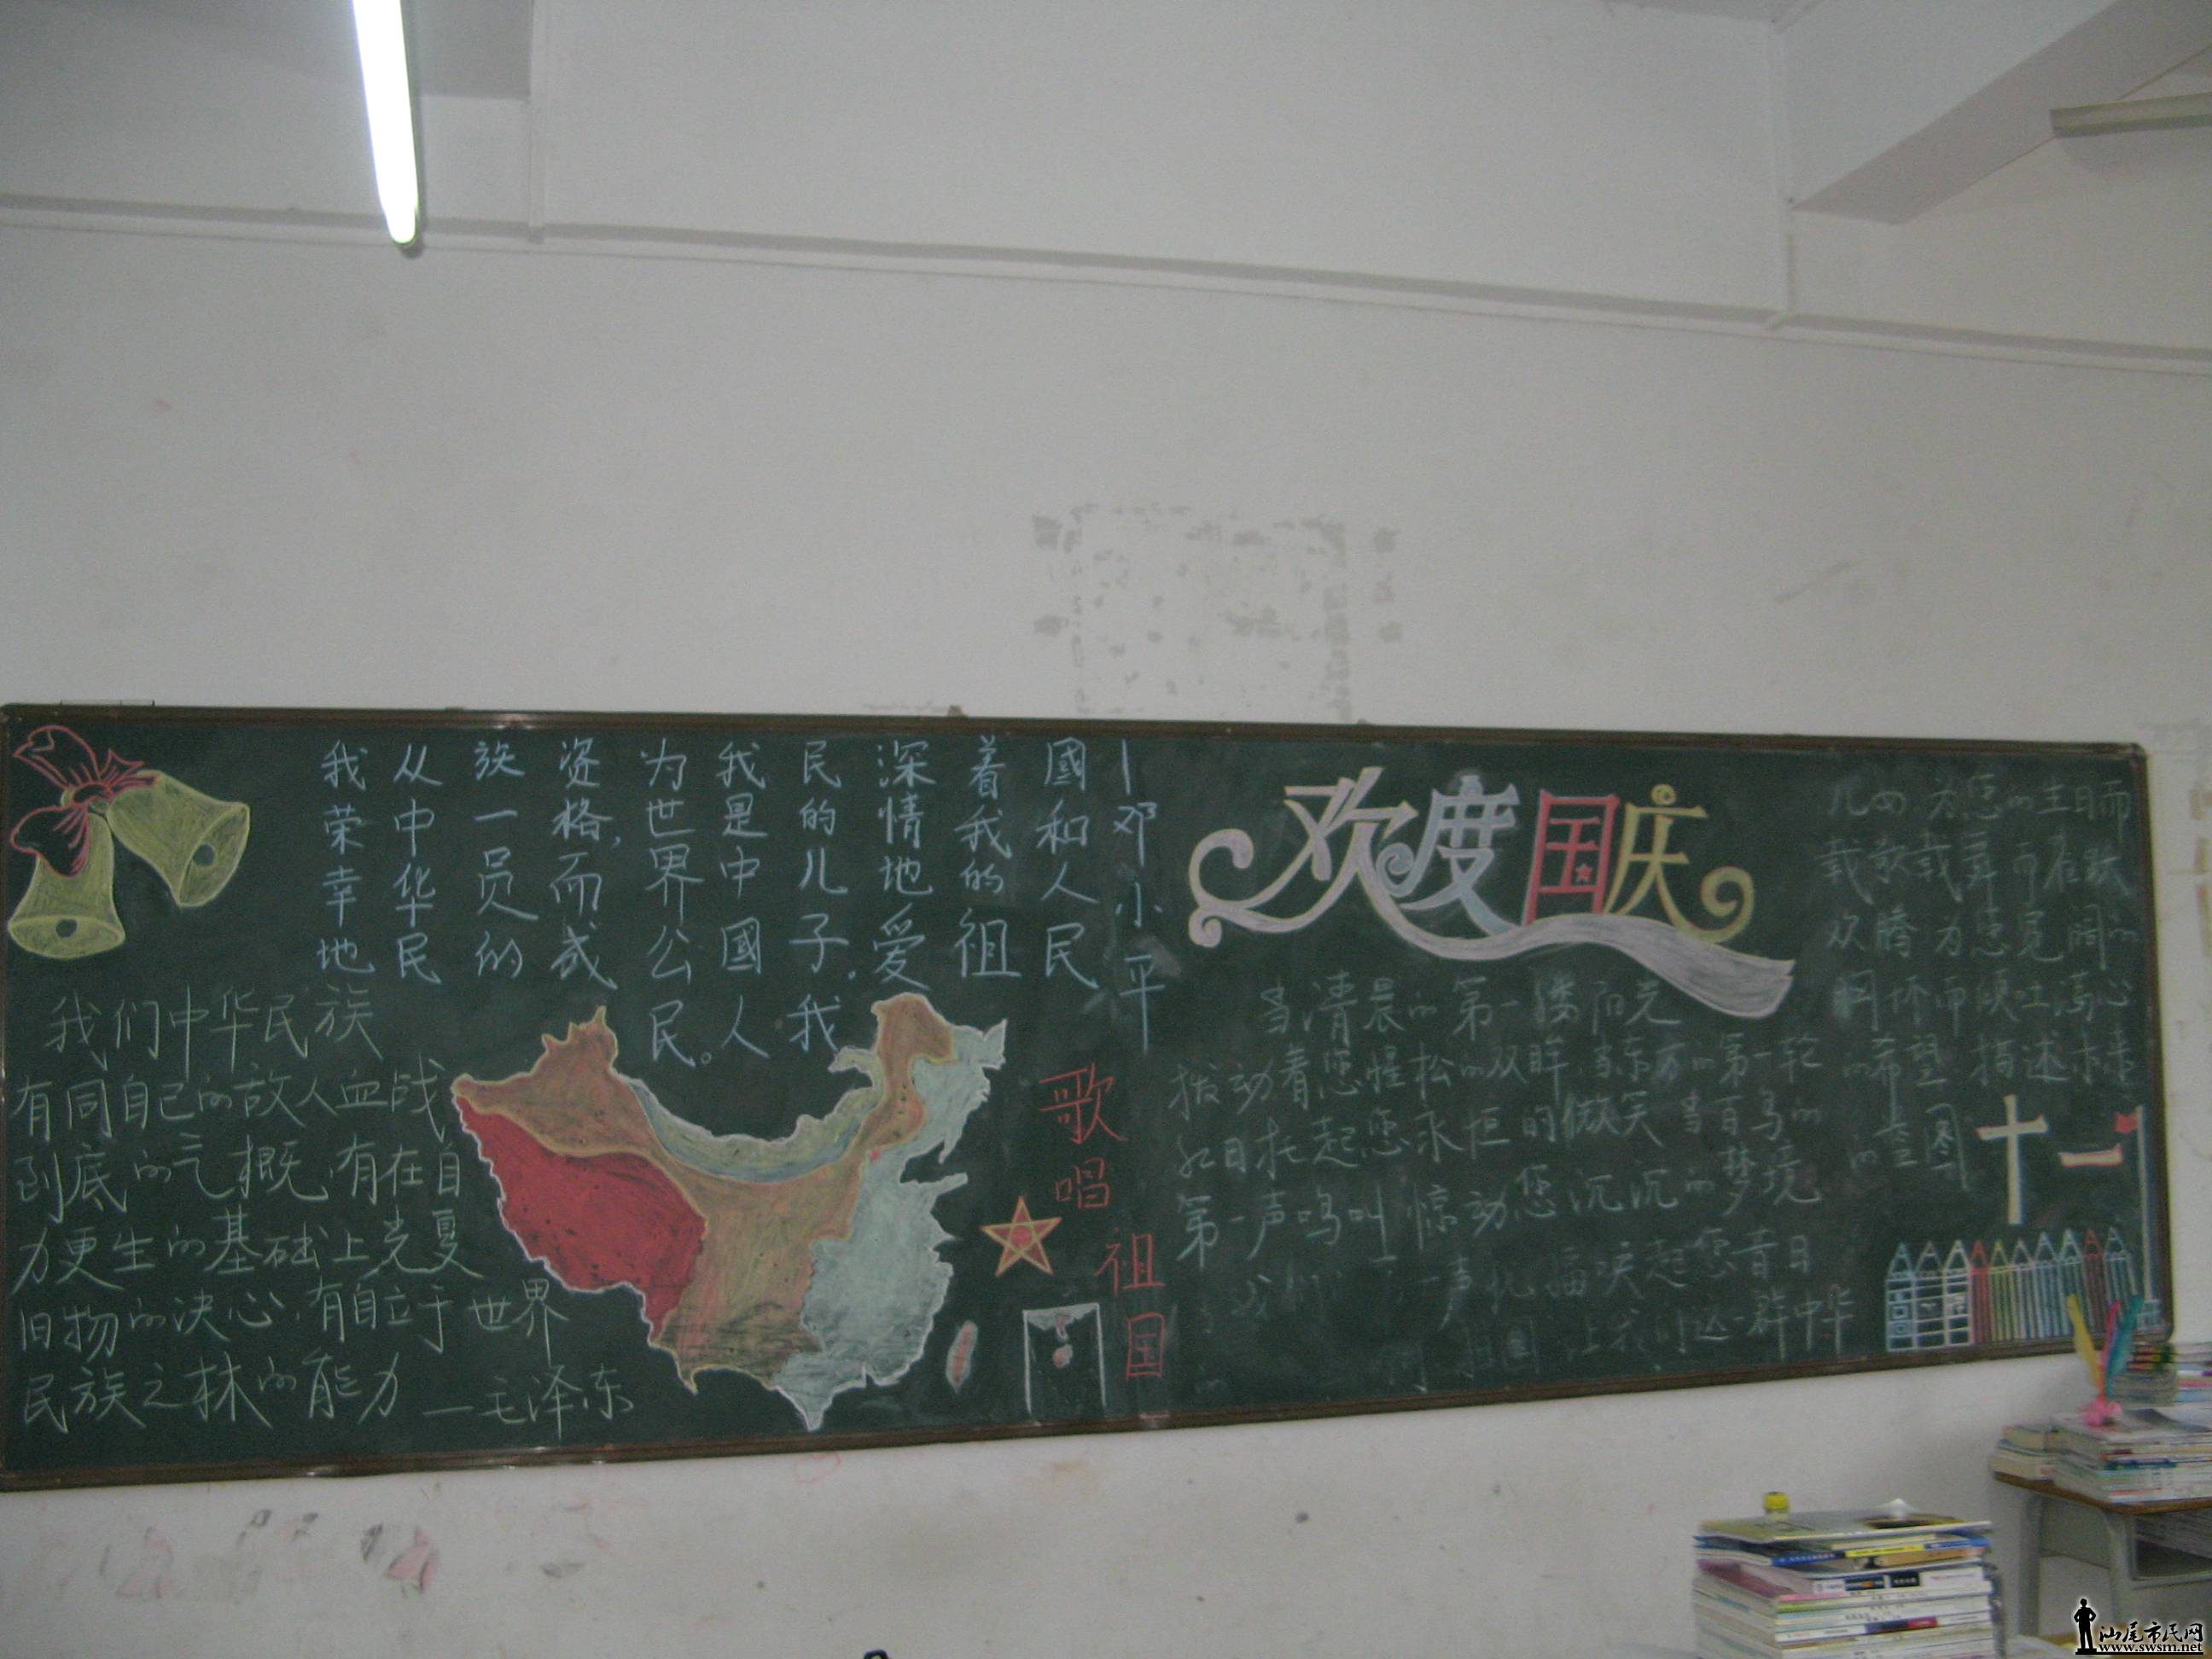 我荣幸地
从中华民
族一员的
资格,而成
为世界公民。
我是中國人
民的儿子,我
深情地爱
着我的祖
國和人民
—邓小平
我们中华民族
有同自己的敌人血战
到底的气概,有在自
力更生的基础上光复
旧物的决心,有自立于世界
民族之林的能力
—毛泽东
歌唱
祖国
欢度国庆
当清晨的第一缕阳光
拨动着您惺松的双眸 当东方的第一轮
红日托起您永恒的微笑 当百鸟的
第一声鸣叫惊动您沉沉的梦境
一声 祝福唤起您昔日
祖国 让我们这一群中华
儿 为您的生日而
载歌载舞 而
欢腾 为您宽阔的
胸怀而倾吐 心
的希望 描述未来
的 图
十一
汕尾市民网
www.swsm.net